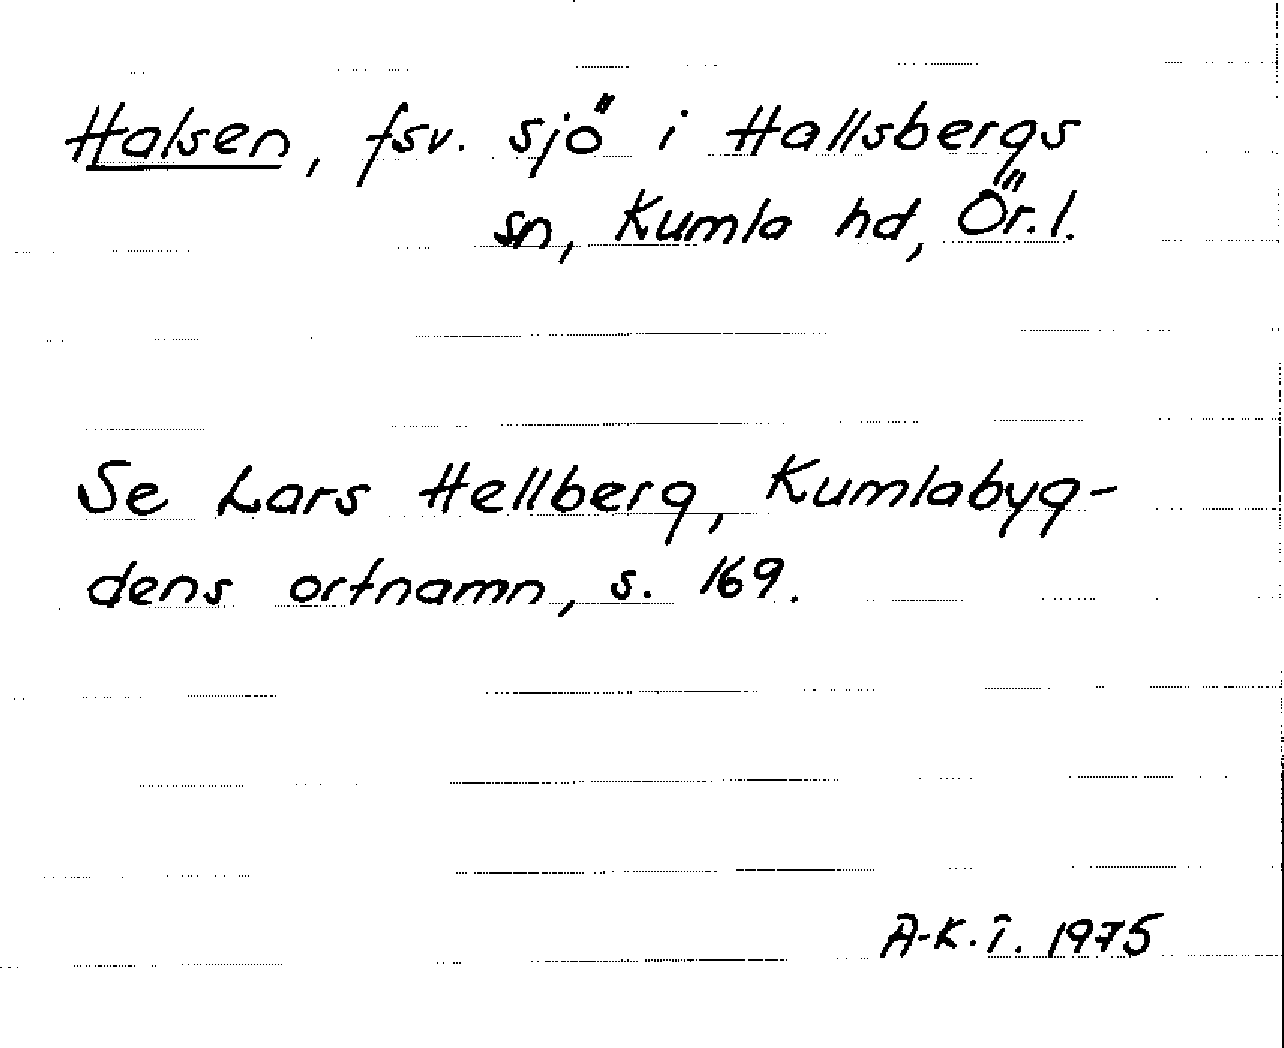 Halsen, fsv. sjö i Hallsbergs
sn, Kumla hd, Ör.l.
Se Lars Hellberg, Kumlabyg-
dens ortnamn, s. 169.
A-K.T. 1975